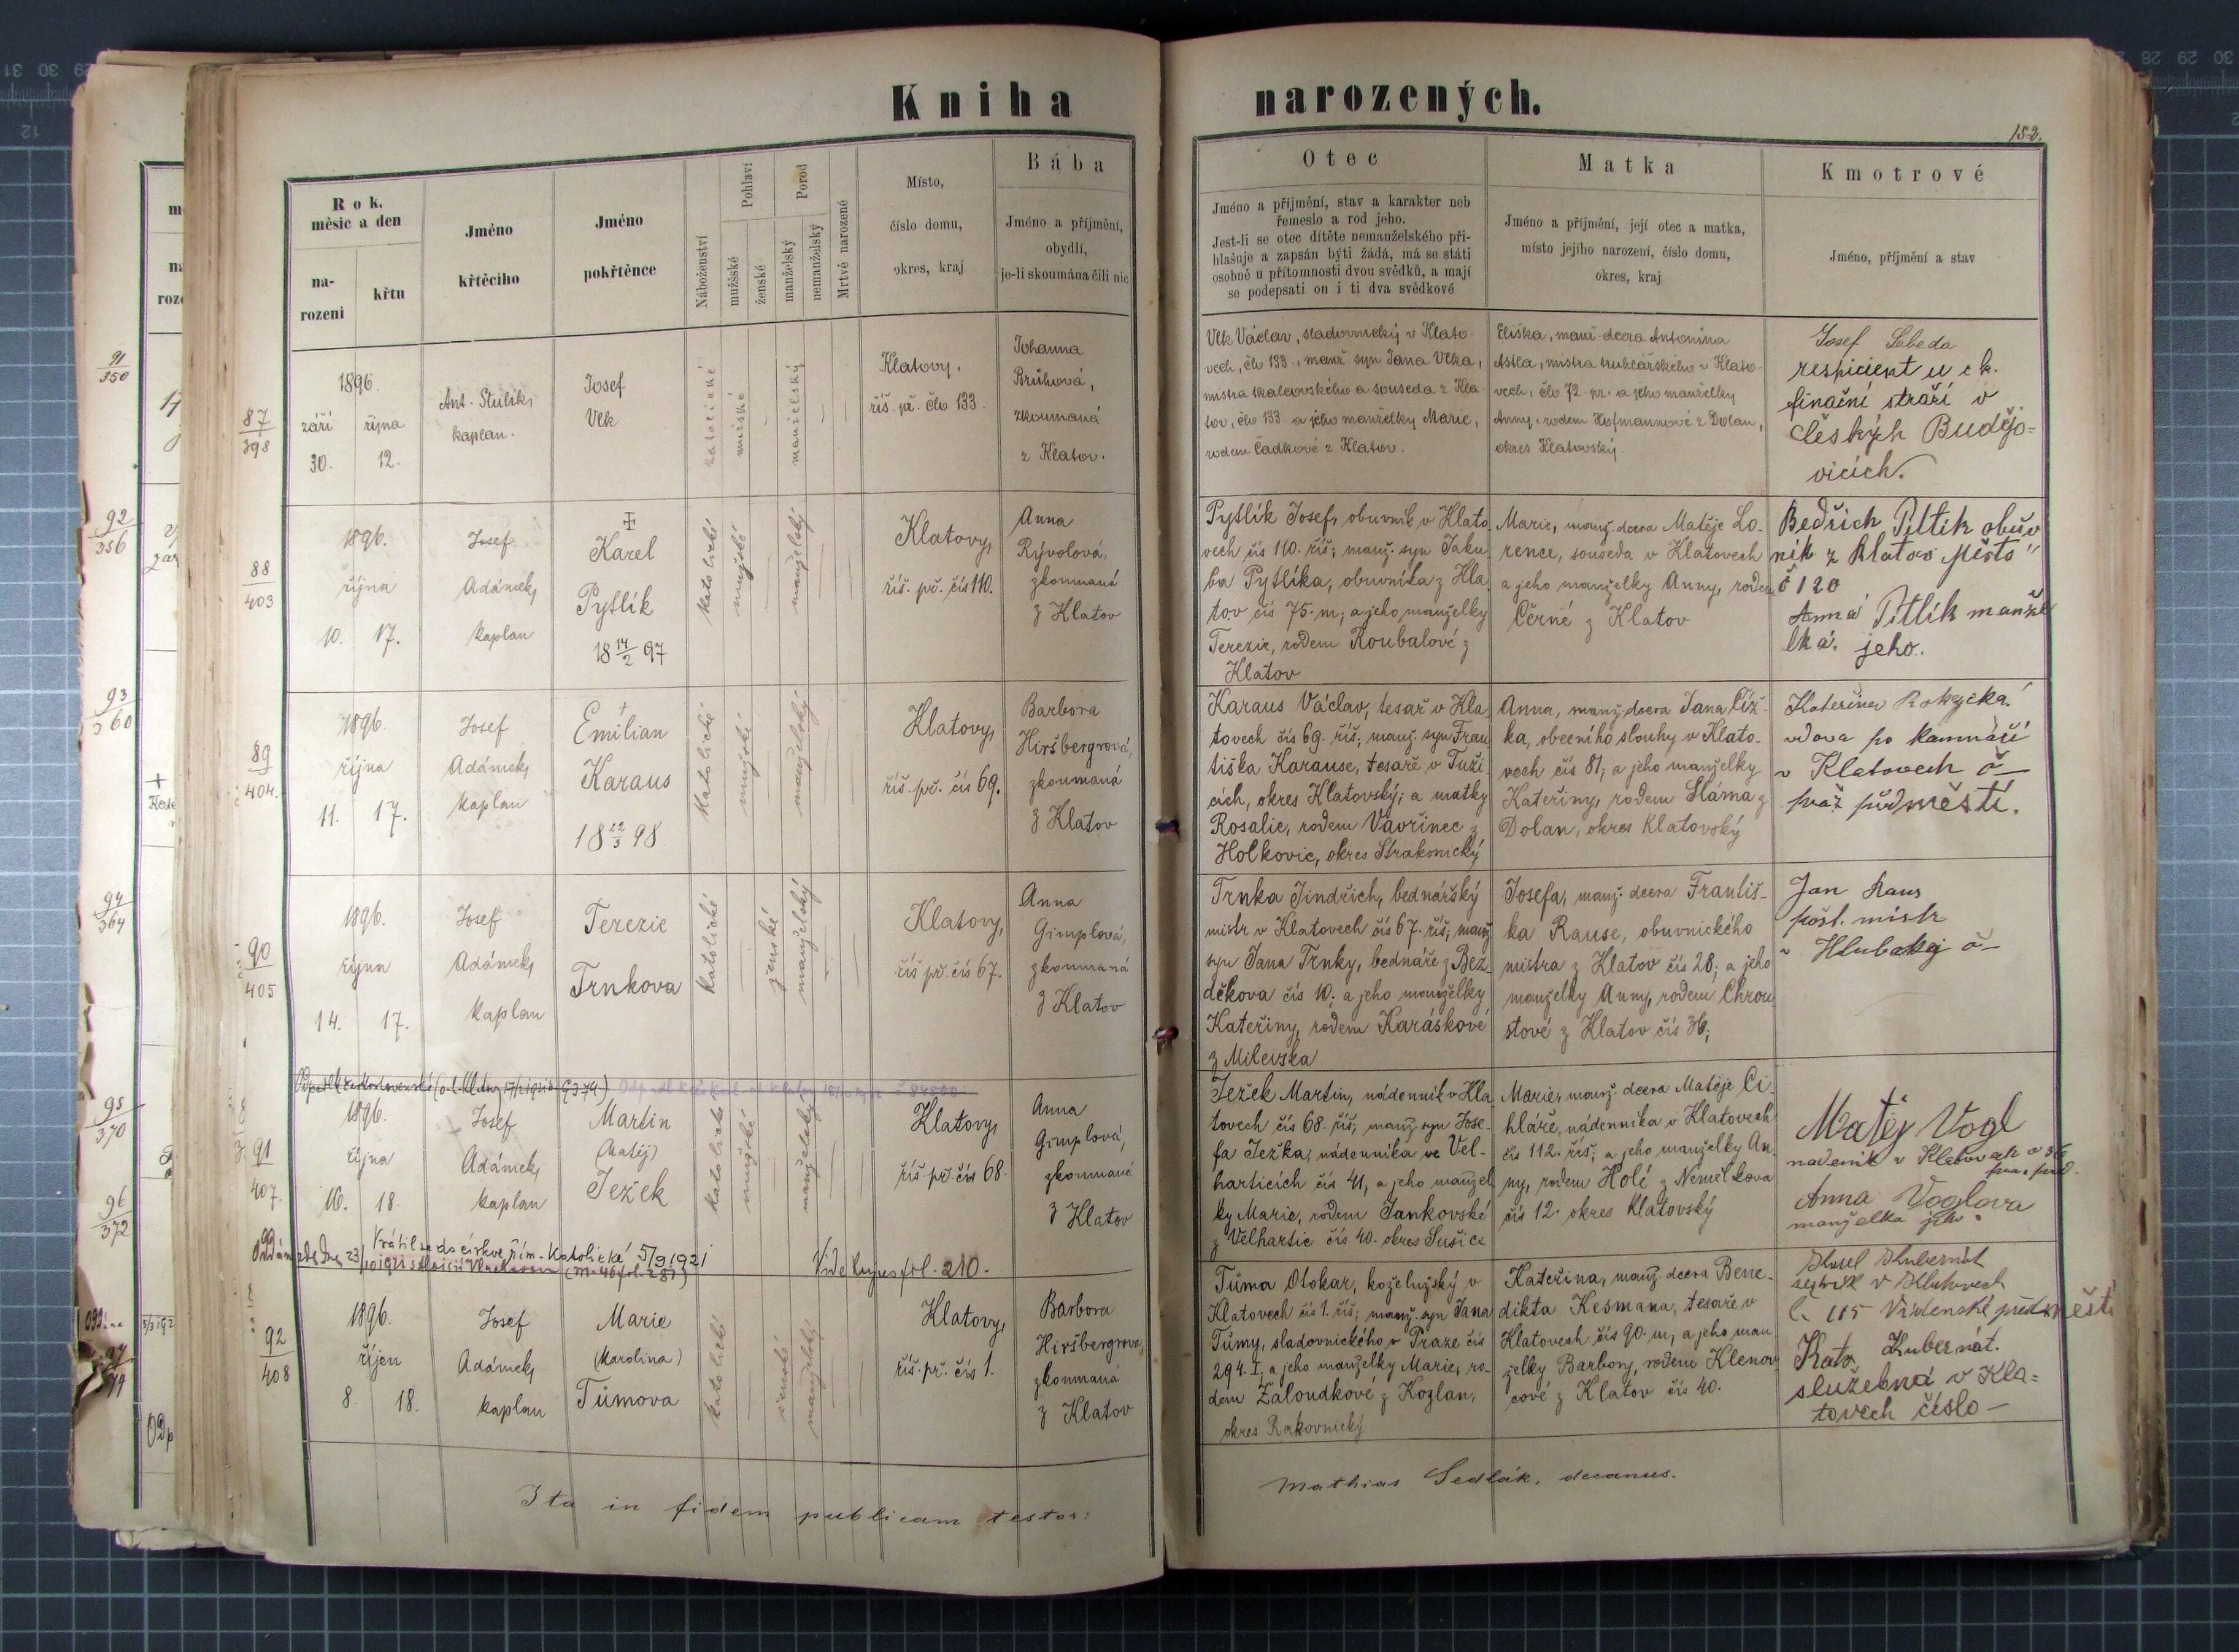 Kniha narozených.
152.
Rok, měsíc a den
narození
křtu
Jméno křtěcího
Jméno pokřtěnce
Náboženství
Pohlaví
mužské
ženské
Porod
manželský
nemanželský
Mrtvě narozené
Místo,
číslo domu,
okres, kraj
Bába
Jméno a příjmění,
obydlí,
je-li skoumána čili nic
Otec
Jméno a příjmění, stav a karakter neb
řemeslo a rod jeho.
Jest-li se otec dítěte nemanželského při-
hlašuje a zapsán býti žádá, má se státi
osobně u přítomnosti dvou svědků, a mají
se podepsati on i ti dva svědkové
Matka
Jméno a příjmění, její otec a matka,
místo jejího narození, číslo domu,
okres, kraj
Kmotrové
Jméno, příjmění a stav
87
398
1896.
září října
30. 12.
Ant. Stulík,
kaplan.
Josef
Vlk
katolické
mužské
manželský
Klatovy.
říš. př. člo 133.
Johanna
Brůhová,
zkoumaná
z Klatov.
Vlk Václav, sladovnický v Klato-
vech, člo 133., manž. syn Jana Vlka,
mistra skalcovského a souseda z Kla
tov, člo 133. a jeho manželky Marie,
rodem Čadkové z Klatov.
Eliška, manž. dcera Antonína
Astla, mistra truhlářského v Klato-
vech, člo 72 pr. a jeho manželky
Anny, rodem Hofmannové z Dolan,
okres Klatovský.
Josef Lebeda
respicient u c k.
finační stráží v
Českých Budějo-
vicích.
88
403
1896.
října
10. 17.
Josef
Adámek,
kaplan
Karel
Pytlík
18 14/2 97
katolické
mužské
manželský
Klatovy,
říš. př. čís 110.
Anna
Rývolová,
zkoumaná
z Klatov
Pytlík Josef, obuvník v Klato
vech čís 110. říš; manž. syn Jaku
ba Pytlíka, obuvníka z Kla
tov čís 75. m; a jeho manželky
Terezie, rodem Roubalové z
Klatov
Marie, manž. dcera Matěje Lo-
rence, souseda v Klatovech
a jeho manželky Anny, rodem
Černé z Klatov
Bedřich Pitlik obuv
ník z Klatov Město
č 120
Anna Pitlík manže
lka. jeho.
89
404.
1896.
října
11. 17.
Josef
Adámek,
kaplan
Emilian
Karaus
18 22/3 98
katolické
mužské
manželský
Klatovy,
říš. př. čís 69.
Barbora
Hiršbergrová,
zkoumaná
z Klatov
Karaus Václav, tesař v Kla
tovech čís 69. říš; manž. syn Fran
tiška Karause, tesaře v Tuži
cích, okres Klatovský; a matky
Rosalie, rodem Vavřinec z
Holkovic, okres Strakonický
Anna, manž. dcera Jana Číž-
ka, obecního slouhy v Klato-
vech čís 81; a jeho manželky
Kateřiny, rodem Sláma z
Dolan, okres Klatovský
Kateřina Rokycká
vdova po kamnáři
v Klatovech č—
praž předměstí.
90
405
1896.
října
14. 17.
Josef
Adámek,
kaplan
Terezie
Trnkova
katolické
ženské
manželský
Klatovy,
říš př. čís 67.
Anna
Gimplová,
zkoumaná
z Klatov
Trnka Jindřich, bednářský
mistr v Klatovech čís 67. říš; manž
syn Jana Trnky, bednáře z Bez-
děkova čís 10; a jeho manželky
Kateřiny, rodem Karáskové
z Milevska
Josefa, manž. dcera Františ-
ka Rause, obuvnického
mistra z Klatov čís 28; a jeho
manželky Anny, rodem Chrou
stové z Klatov čís 36;
Jan Raus
pošt. mistr
v Hluboký č—
91
407.
1896.
října
16. 18.
Josef
Adámek,
kaplan
Martin
(Matěj)
Ježek
katolické
mužské
manželský
Klatovy,
říš. př. čís 68.
Anna
Gimplová,
zkoumaná
z Klatov
Ježek Martin, nádenník v Kla
tovech čís 68. říš; manž. syn Jose-
fa Ježka, nádenníka ve Vel-
harticích čís 41, a jeho manžel
ky Marie, rodem Jankovské
z Velhartic čís 40. okres Sušice
Marie, manž. dcera Matěje Ci
hláře, nádenníka v Klatovech
čís 112. říš; a jeho manželky An
ny, rodem Holé z Nemělkova
čís 12. okres Klatovský
Matěj Vogl
nadenik v Klatovech č 36
praz před.
Anna Voglova
manželka jeho
Vrátil se do církve řím. katolické 5/9 1921
Vide supra fol. 210.
92
408
1896.
říjen
8. 18.
Josef
Adámek,
kaplan
Marie
(Karolina)
Tůmova
katolické
ženské
manželský
Klatovy,
říš. př. čís 1.
Barbora
Hiršbergrova,
zkoumaná
z Klatov
Tůma Otokar, koželužský v
Klatovech čís 1. říš; manž. syn Jana
Tůmy, sladovnického v Praze čís
294. I, a jeho manželky Marie, ro-
dem Žaloudkové z Kozlan,
okres Rakovnický
Kateřina, manž. dcera Bene-
dikta Kesmana, tesaře v
Klatovech čís 90. m, a jeho man
želky Barbory, rodem Klenov
cové z Klatov čís 40.
Karel Kubernát
v Klatovech
č. 105 Vídenské předměstí
Kat. Kubernát.
služebná v Kla=
tovech číslo—
Ita in fidem publicam testor:
Mathias Sedlák, decanus.
91
350
92
356
93
360
94
364
95
370
96
372